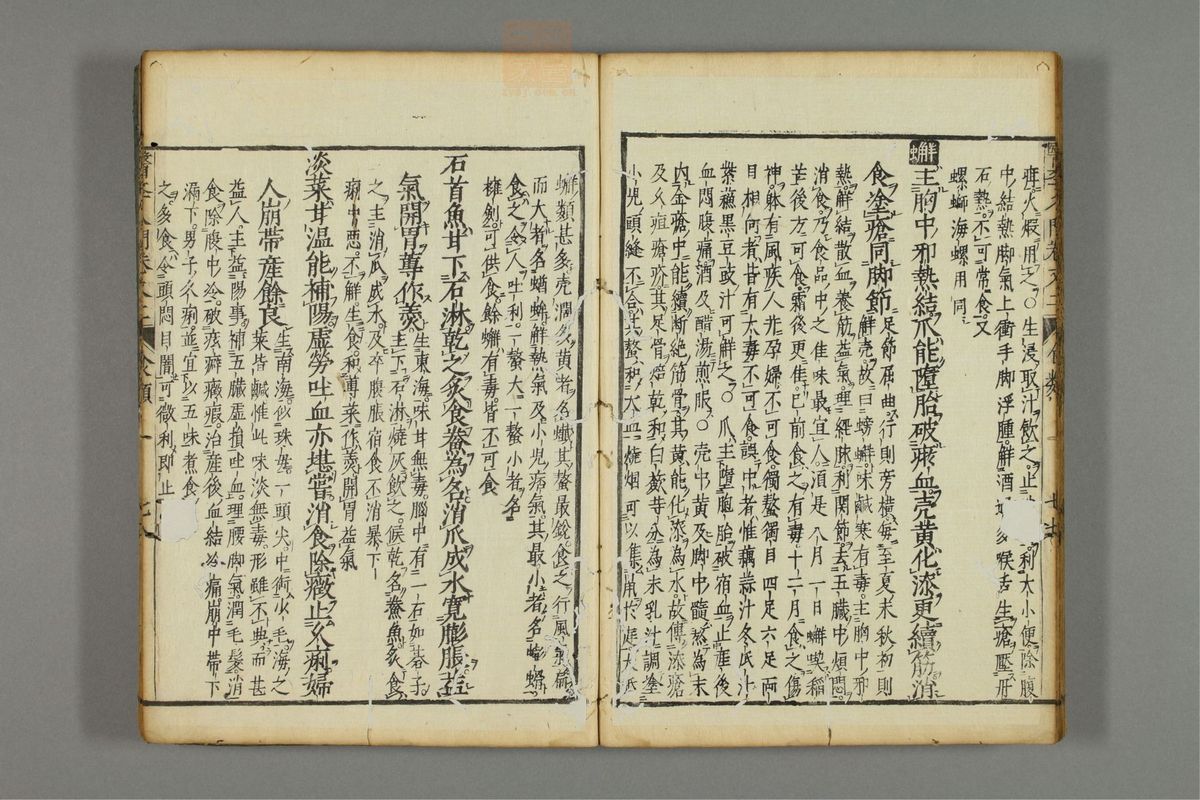 疽火煆用之○生浸取汁飲之止利大小便除腹
中結熱脚氣上衝手脚浮腫解酒多喉舌生瘡壓丹
石熱不可常食又
螺螄海螺用同
蠏主胸中邪熱結爪能墮胎破瘀血壳黄化漆更續筋消
食塗瘡同脚節足節屈曲行則旁橫每至夏末秋初則
解壳故曰螃蠏味鹹寒有毒主胸中邪
熱解結散血養筋益氣理經脉利關節去五臟中煩悶
消食乃食品中之佳味最宜人須是八月一日蠏喫稻
芒後方可食霜後更佳已前食之有毒十二月食之傷
神躰有風疾人并孕婦不可食獨螯獨目四足六足兩
目相向者皆有大毒不可食誤中者惟藕蒜汁冬瓜汁
紫蘓黑豆豉汁可解之○爪主墮胞胎破宿血止産後
血悶腹痛酒及醋湯煎服○壳中黄及脚中髓熬為末
内金瘡中能續斷絶筋骨其黄能化漆為水故傅漆瘡
及久疽瘡疥其足骨焙乾和白蘞等分為末乳汁調塗
小児頭縫不合其螯和大血燒烟可以集鼠於庭大抵
蠏類甚多壳濶多黄者名蠘其螯最銳食之行風氣扁
而大者名蝤蛑解熱氣及小児痞氣其最小者名蟛蜞
食之令人吐利一螯大一螯小者名
擁劍可供食餘蠏有毒皆不可食
石首魚甘下石淋乾之炙食鮝為名消爪成水寛膨脹益
氣開胃蓴作羮生東海味甘無毒腦中有一石如碁子
主下石淋燒灰飲之候乾名鮝魚炙食
之主消爪成水及卒腹脹宿食不消暴下
痢中惡不解生食和蓴菜作羮開胃益氣
淡菜甘温能補陽虚勞吐血亦堪嘗消食除癥止久痢婦
人崩帶産餘良生南海似珠母一頭尖中銜少毛海之
菜皆鹹惟此味淡無毒形雖不典而甚
益人主益陽事補五臟虚損吐血理腰脚氣潤毛髮消
食除腹中冷破痃癖癥瘕治産後血結冷痛崩中帶下
漏下男子久痢並宜以五味煮食
之多食令頭悶目闇可微利即止